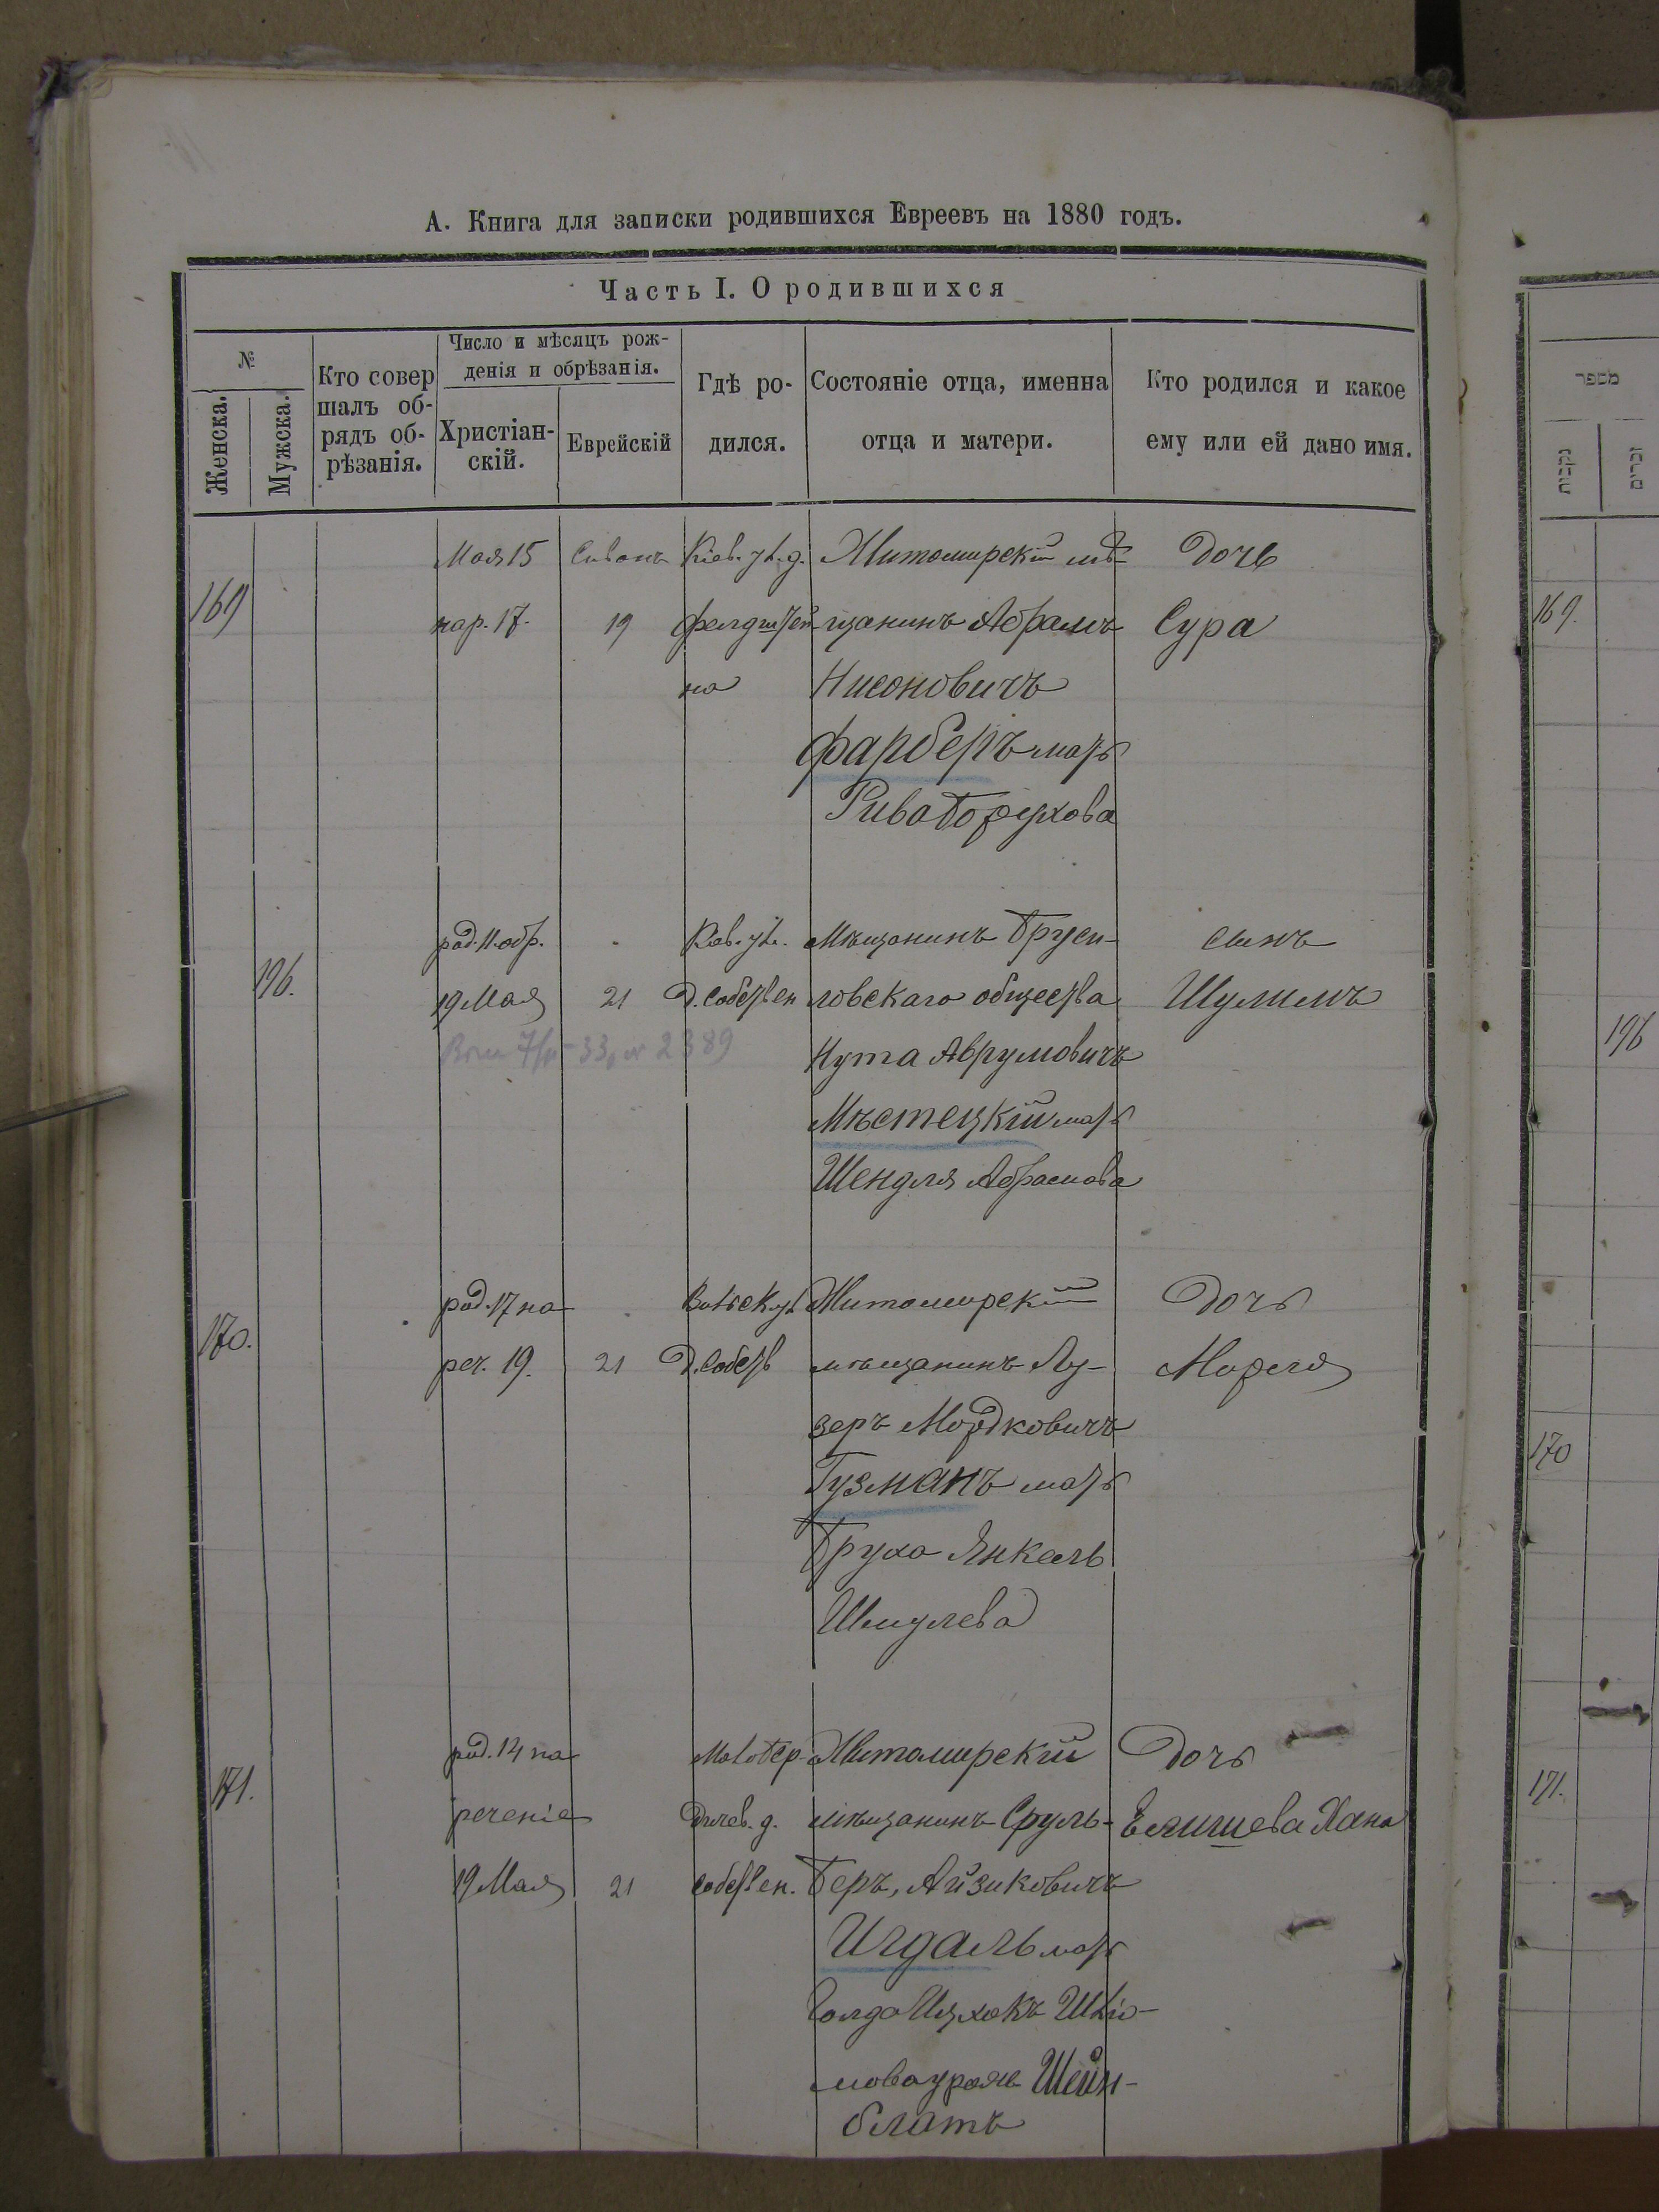 А. Книга для записки родившихся Евреевъ на 1880 годъ.
Часть I. О родившихся
№
Женска.
Мужска.
Кто совер
шалъ об-
рядъ об-
рѣзанія.
Число и мѣсяцъ рож-
денія и обрѣзанія.
Христіан-
скій.
Еврейскій
Гдѣ ро-
дился.
Состояніе отца, именна
отца и матери.
Кто родился и какое
ему или ей дано имя.
169
Мая 15
нар. 17.
Сиванъ
19
Кіев. ул. д.
фелдштей-
на
Житомирскій мѣ-
щанинъ Абрамъ
Нисоновичъ
Фарберъ мать
Рива Борухова
Дочь
Сура
196.
род. 11. обр.
19 Мая
21
Кіев. ул.
д. собствен
Мѣщанинъ Бруси-
ловскаго общества
Нута Аврумовичъ
Мѣстецкій мать
Шендля Абрамова
сынъ
Шулимъ
2389
170.
род. 17 на
реч. 19.
21
д. собств
Житомирскій
мѣщанинъ Лу-
зеръ Мордковичъ
Гузманъ мать
Бруха Янкель
Шмулева
Дочь
171.
род. 14 на
реченіе
19 Мая
21
дичев. д.
собствен.
Житомирскій
мѣщанинъ Сруль-
Беръ, Айзиковичъ
Игдаль мать
Голда Ицхокъ Шлио-
мова урож Шейн-
блатъ
Дочь
Елишева Хана
מספר
נקבות
זכרים
169.
196
170
171.